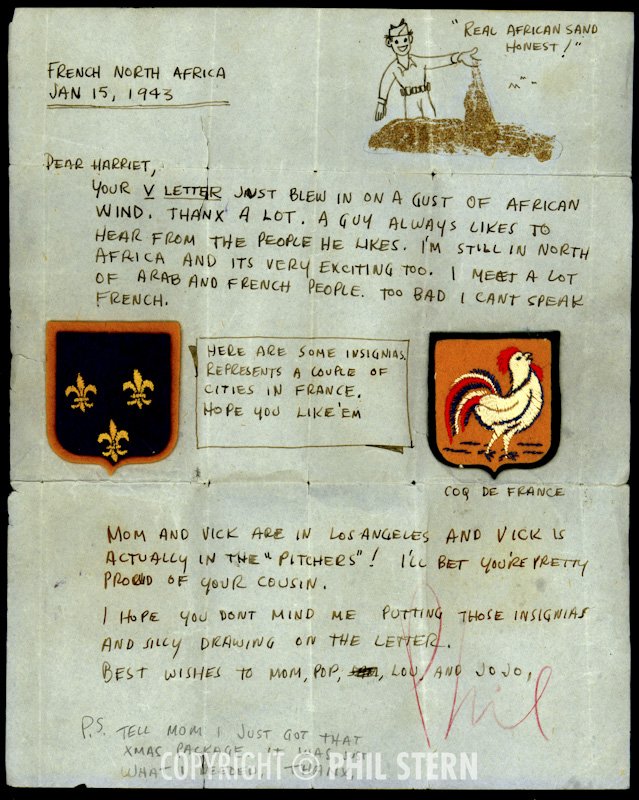 "REAL AFRICAN SAND
HONEST!"
FRENCH NORTH AFRICA
JAN 15, 1943
DEAR HARRIET,
YOUR V LETTER JUST BLEW IN ON A GUST OF AFRICAN
WIND. THANX A LOT. A GUY ALWAYS LIKES TO
HEAR FROM THE PEOPLE HE LIKES. I'M STILL IN NORTH
AFRICA AND ITS VERY EXCITING TOO. I MEET A LOT
OF ARAB AND FRENCH PEOPLE. TOO BAD I CANT SPEAK
FRENCH.
HERE ARE SOME INSIGNIAS.
REPRESENTS A COUPLE OF
CITIES IN FRANCE.
HOPE YOU LIKE 'EM
COQ DE FRANCE
MOM AND VICK ARE IN LOS ANGELES AND VICK IS
ACTUALLY IN THE "PITCHERS"! I'LL BET YOU'RE PRETTY
PROUD OF YOUR COUSIN.
I HOPE YOU DONT MIND ME PUTTING THOSE INSIGNIAS
AND SILLY DRAWING ON THE LETTER.
BEST WISHES TO MOM, POP, , LOU, AND JOJO,
Phil
P.S. TELL MOM I JUST GOT THAT
XMAS PACKAGE. IT WAS JUST
WHAT I NEEDED. THANX,
COPYRIGHT © PHIL STERN